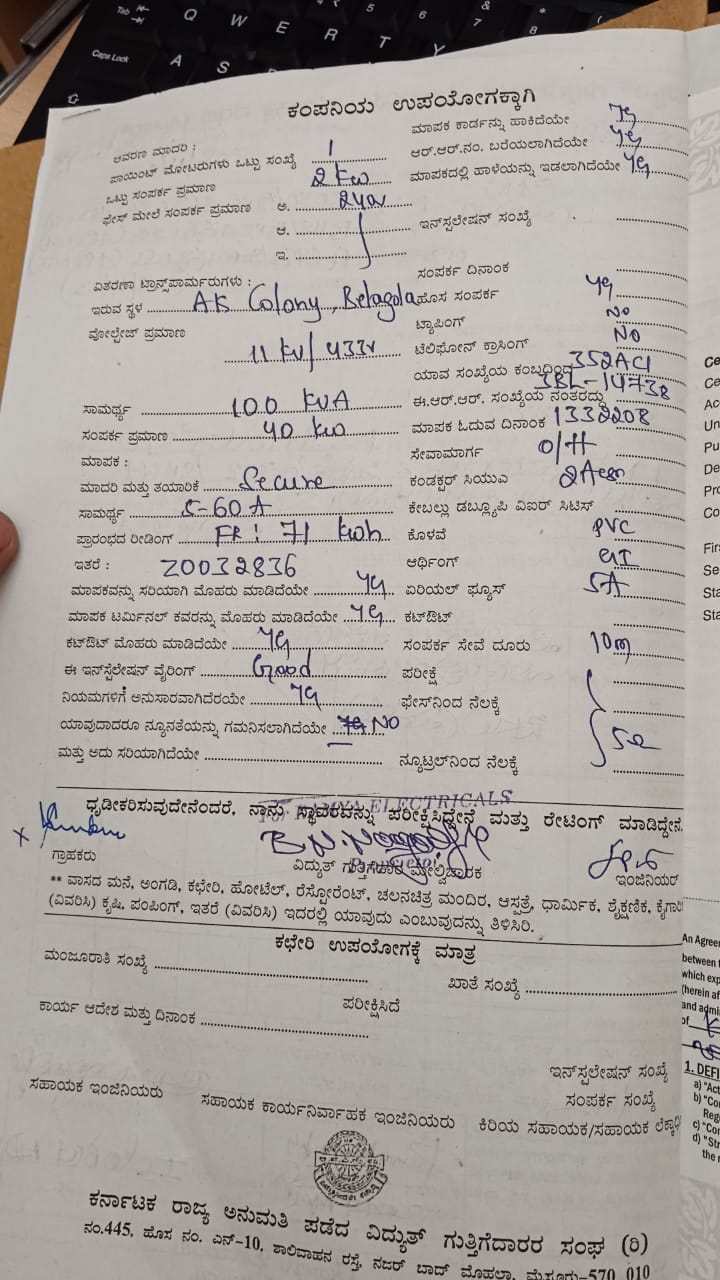 ಕಂಪನಿಯ ಉಪಯೋಗಕ್ಕಾಗಿ
ಆವರಣ ಮಾದರಿ :
ಪಾಯಿಂಟ್ ಮೋಟರುಗಳು ಒಟ್ಟು ಸಂಖ್ಯೆ 1
ಒಟ್ಟು ಸಂಪರ್ಕ ಪ್ರಮಾಣ 2 kw
ಫೇಸ್ ಮೇಲೆ ಸಂಪರ್ಕ ಪ್ರಮಾಣ ಅ. 240v
ಆ.
ಇ.
ವಿತರಣಾ ಟ್ರಾನ್ಸ್‌ಪಾರ್ಮರುಗಳು :
ಇರುವ ಸ್ಥಳ AK Colony, Belagola
ವೋಲ್ಟೇಜ್ ಪ್ರಮಾಣ
11 kv/433v
ಸಾಮರ್ಥ್ಯ 100 KVA
ಸಂಪರ್ಕ ಪ್ರಮಾಣ 40 kw
ಮಾಪಕ :
ಮಾದರಿ ಮತ್ತು ತಯಾರಿಕೆ Secure
ಸಾಮರ್ಥ್ಯ 5-60 A
ಪ್ರಾರಂಭದ ರೀಡಿಂಗ್ FR: 71 kwh
ಇತರೆ : Z0032836
ಮಾಪಕವನ್ನು ಸರಿಯಾಗಿ ಮೊಹರು ಮಾಡಿದೆಯೇ yes
ಮಾಪಕ ಟರ್ಮಿನಲ್ ಕವರನ್ನು ಮೊಹರು ಮಾಡಿದೆಯೇ yes
ಕಟ್‌ಔಟ್ ಮೊಹರು ಮಾಡಿದೆಯೇ yes
ಈ ಇನ್‌ಸ್ಪಲೇಷನ್ ವೈರಿಂಗ್ Good
ನಿಯಮಗಳಿಗೆ ಅನುಸಾರವಾಗಿದೆರಯೇ yes
ಯಾವುದಾದರೂ ನ್ಯೂನತೆಯನ್ನು ಗಮನಿಸಲಾಗಿದೆಯೇ NO
ಮತ್ತು ಅದು ಸರಿಯಾಗಿದೆಯೇ
ಮಾಪಕ ಕಾರ್ಡನ್ನು ಹಾಕಿದೆಯೇ yes
ಆರ್.ಆರ್.ನಂ. ಬರೆಯಲಾಗಿದೆಯೇ yes
ಮಾಪಕದಲ್ಲಿ ಹಾಳೆಯನ್ನು ಇಡಲಾಗಿದೆಯೇ yes
ಇನ್‌ಸ್ಪಲೇಷನ್ ಸಂಖ್ಯೆ
ಸಂಪರ್ಕ ದಿನಾಂಕ
ಹೊಸ ಸಂಪರ್ಕ yes
ಟ್ಯಾಪಿಂಗ್ NO
ಟೆಲಿಫೋನ್ ಕ್ರಾಸಿಂಗ್ NO
ಯಾವ ಸಂಖ್ಯೆಯ ಕಂಬದಿಂದ 352AC1
ಈ.ಆರ್.ಆರ್. ಸಂಖ್ಯೆಯ ನಂತರದ್ದು 3BL-14738
ಮಾಪಕ ಓದುವ ದಿನಾಂಕ 1332208
ಸೇವಾಮಾರ್ಗ O/H
ಕಂಡಕ್ಟರ್ ಸಿಯುವಿ
ಕೇಬಲ್ಲು ಡಬ್ಲ್ಯೂಪಿ ವಿಐರ್ ಸಿಟಿಸ್
ಕೊಳವೆ PVC
ಆರ್ಥಿಂಗ್ GI
ಏರಿಯಲ್ ಫ್ಯೂಸ್ 5A
ಕಟ್‌ಔಟ್
ಸಂಪರ್ಕ ಸೇವೆ ದೂರು 10m
ಪರೀಕ್ಷೆ
ಫೇಸ್‌ನಿಂದ ನೆಲಕ್ಕೆ
ನ್ಯೂಟ್ರಲ್‌ನಿಂದ ನೆಲಕ್ಕೆ
ಧೃಡೀಕರಿಸುವುದೇನೆಂದರೆ, ನಾನು ಸ್ಥಾವರವನ್ನು ಪರೀಕ್ಷಿಸಿದ್ದೇನೆ ಮತ್ತು ರೇಟಿಂಗ್ ಮಾಡಿದ್ದೇನೆ.
ELECTRICALS
ಗ್ರಾಹಕರು
ವಿದ್ಯುತ್ ಗುತ್ತಿಗೆದಾರ ಮೇಲ್ವಿಚಾರಕ
ಇಂಜಿನಿಯರ್
** ವಾಸದ ಮನೆ, ಅಂಗಡಿ, ಕಛೇರಿ, ಹೋಟೆಲ್, ರೆಸ್ಟೋರೆಂಟ್, ಚಲನಚಿತ್ರ ಮಂದಿರ, ಆಸ್ಪತ್ರೆ, ಧಾರ್ಮಿಕ, ಶೈಕ್ಷಣಿಕ,
(ವಿವರಿಸಿ) ಕೃಷಿ, ಪಂಪಿಂಗ್, ಇತರೆ (ವಿವರಿಸಿ) ಇದರಲ್ಲಿ ಯಾವುದು ಎಂಬುವುದನ್ನು ತಿಳಿಸಿರಿ.
ಕಛೇರಿ ಉಪಯೋಗಕ್ಕೆ ಮಾತ್ರ
ಮಂಜೂರಾತಿ ಸಂಖ್ಯೆ
ಖಾತೆ ಸಂಖ್ಯೆ
ಪರೀಕ್ಷಿಸಿದೆ
ಕಾರ್ಯ ಆದೇಶ ಮತ್ತು ದಿನಾಂಕ
ಇನ್‌ಸ್ಪಲೇಷನ್ ಸಂಖ್ಯೆ
ಸಂಪರ್ಕ ಸಂಖ್ಯೆ
ಸಹಾಯಕ ಇಂಜಿನಿಯರು
ಸಹಾಯಕ ಕಾರ್ಯನಿರ್ವಾಹಕ ಇಂಜಿನಿಯರು
ಕಿರಿಯ ಸಹಾಯಕ/ಸಹಾಯಕ
ಕರ್ನಾಟಕ ರಾಜ್ಯ ಅನುಮತಿ ಪಡೆದ ವಿದ್ಯುತ್ ಗುತ್ತಿಗೆದಾರರ ಸಂಘ (ರಿ)
ನಂ.445, ಹೊಸ ನಂ. ಎನ್-10, ಶಾಲಿವಾಹನ ರಸ್ತೆ, ನಜರ್ ಬಾದ್ ಮೊಹಲ್ಲಾ, ಮೈಸೂರು-570 010
An Agree
between
which exp
(herein af
and admi
of
1. DEFI
a) "Act
b) "Co
Reg
c) "Cor
d) "Str
the